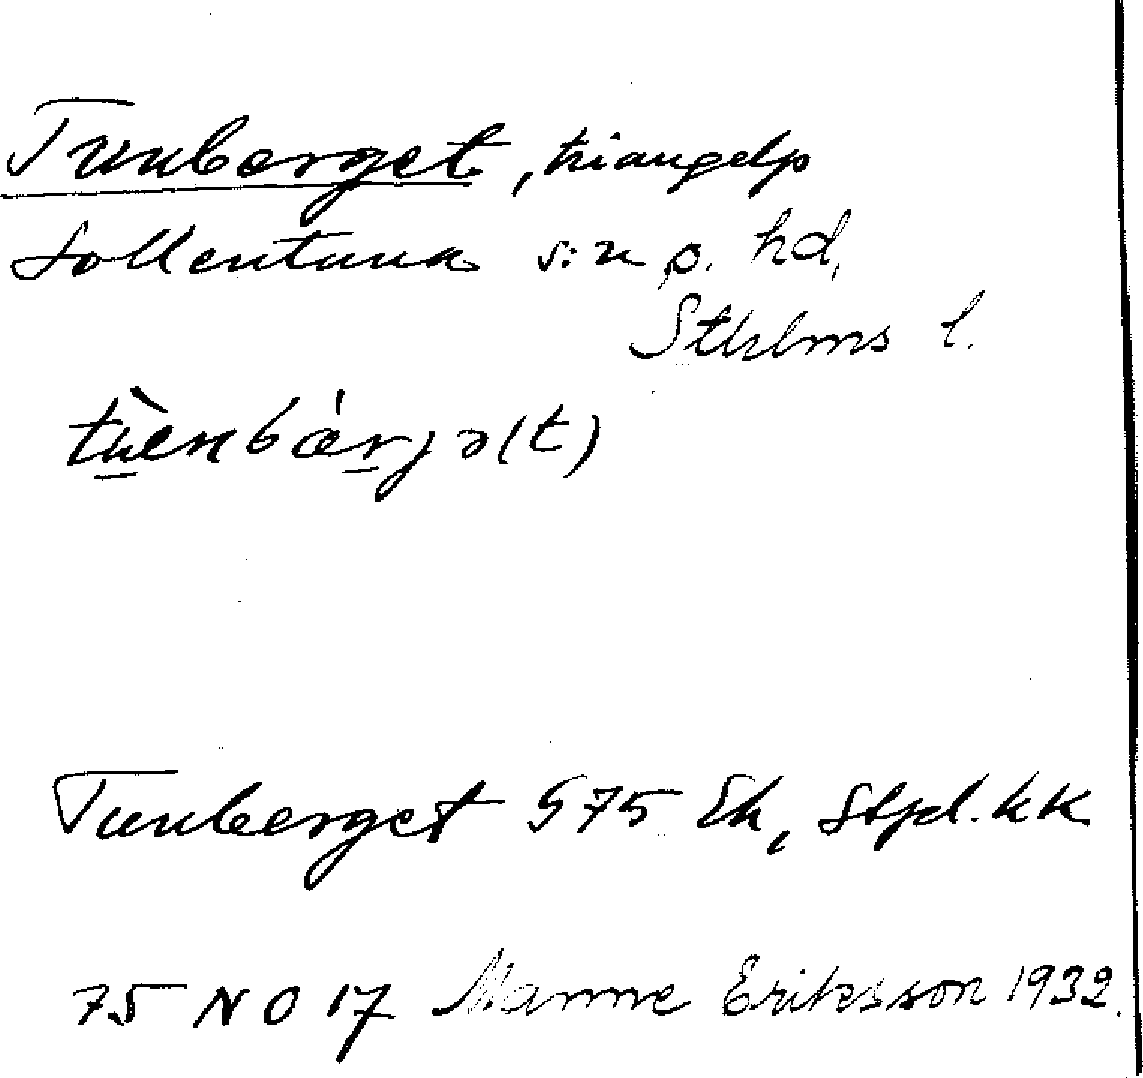 Tunberget, triangelp
Sollentuna s:n o. hd,
Sthlms l.
tùenbǽrjə(t)
Tunberget 575 Ek, Stpl. kk
75 NO 17 Manne Eriksson 1932.